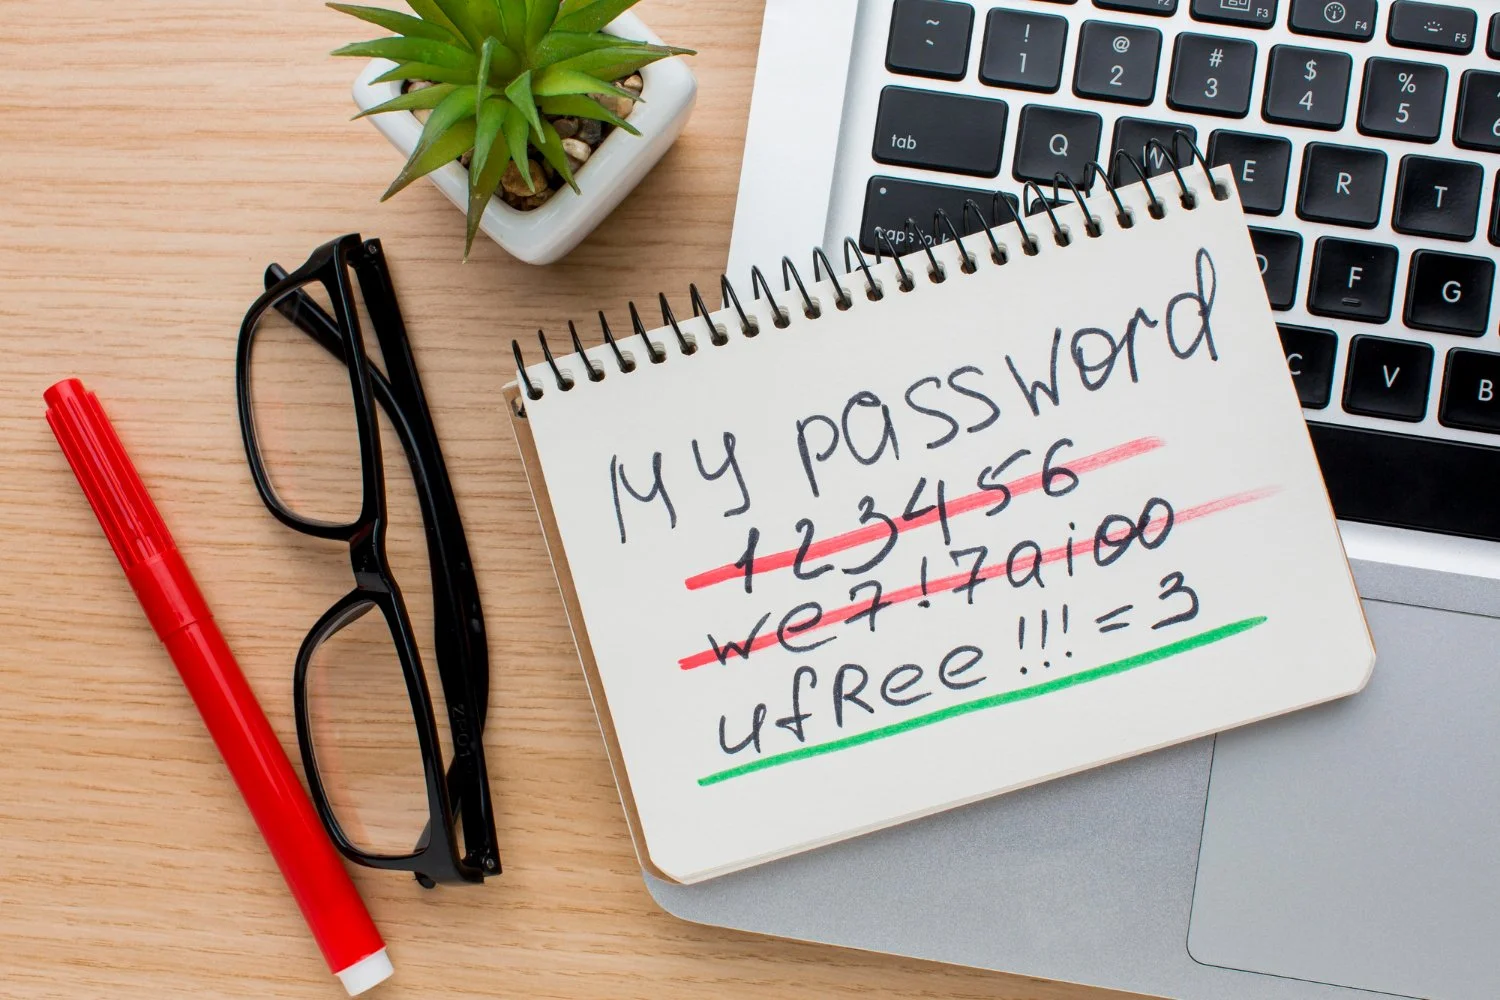 ~
`
! 1
@ 2
# 3
$ 4
% 5
F2
F3
F4
F5
tab
Q
W
E
R
T
caps lock
F
G
C
V
B
My password
123456
we7!7aioo
ufRee!!!=3